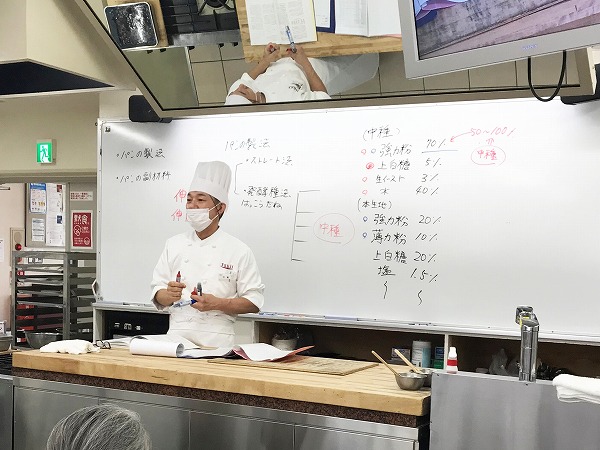 ・パンの製法
・パンの副材料
パンの製法
・ストレート法
・発酵種法
はっこうだね
中種
(中種)
強力粉 70%
50~100%
中種
上白糖 5%
生イースト 3%
水 40%
(本生地)
強力粉 20%
薄力粉 10%
上白糖 20%
塩 1.5%